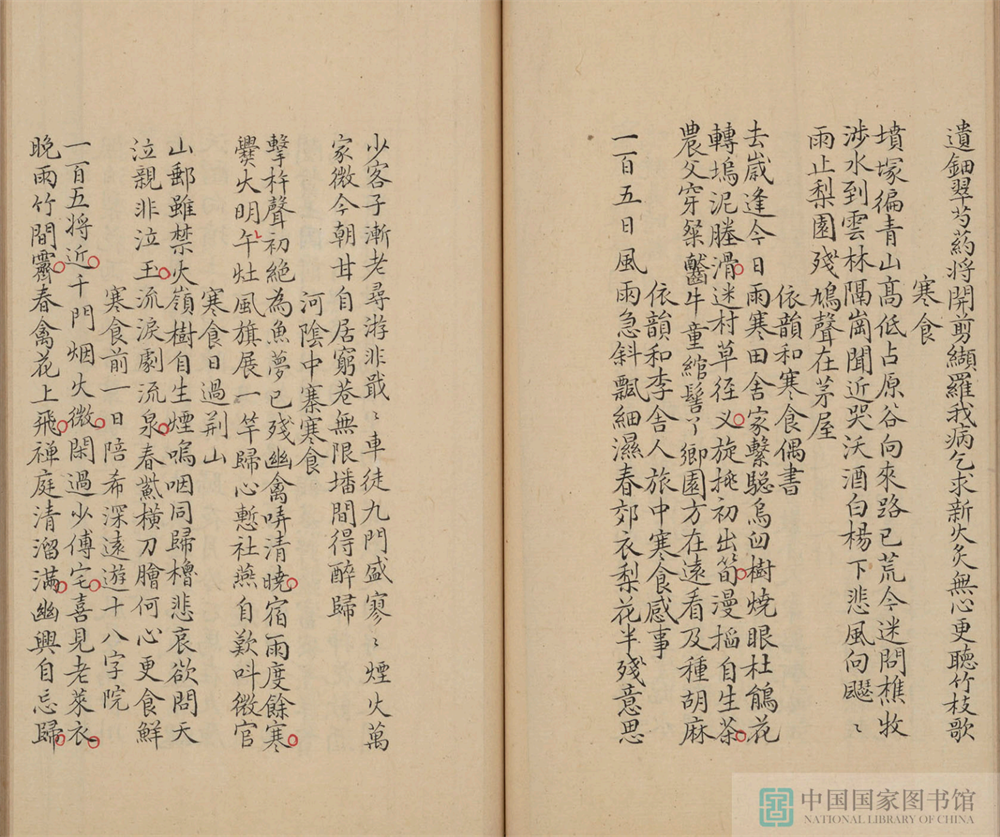 遺鈿翠芍葯將開剪纈羅我病乞求新火炙無心更聽竹枝歌
寒食
墳塚徧青山髙低占原谷向來路已荒今迷問樵牧
涉水到雲林隔崗聞近哭沃酒白楊下悲風向飃〻
雨止梨園殘鳩聲在茅屋
依韻和寒食偶書
去歲逢今日雨寒田舍家繫驄烏臼樹燒眼杜鵑花
轉塢泥塍滑迷村草径义旋挑初出筍漫搯自生茶
農父穿桀鱶牛童綰髻丫鄉園方在遠看及種胡麻
依韻和李舍人旅中寒食感事
一百五日風雨急斜飄細濕春郊衣梨花半殘意思
少客子漸老尋游非戢〻車徒九門盛寥〻煙火萬
家微今朝甘自居窮巷無限墦間得醉歸
河陰中寨寒食
擊柝聲初絶為魚夢已殘幽禽哢清曉宿雨度餘寒
爨火明午灶風旗展一竿歸心慙社燕自歎呌微官
寒食日過荆山
山郵雖禁火嶺樹自生煙嗚咽同歸櫓悲哀欲問天
泣親非泣玉流淚劇流泉春鱭橫刀膾何心更食鮮
寒食前一日陪希深遠遊十八字院
一百五將近千門烟火微閑過少傅宅喜見老萊衣
晚雨竹間霽春禽花上飛禅庭清溜滿幽興自忘歸
中国国家图书馆
NATIONAL LIBRARY OF CHINA